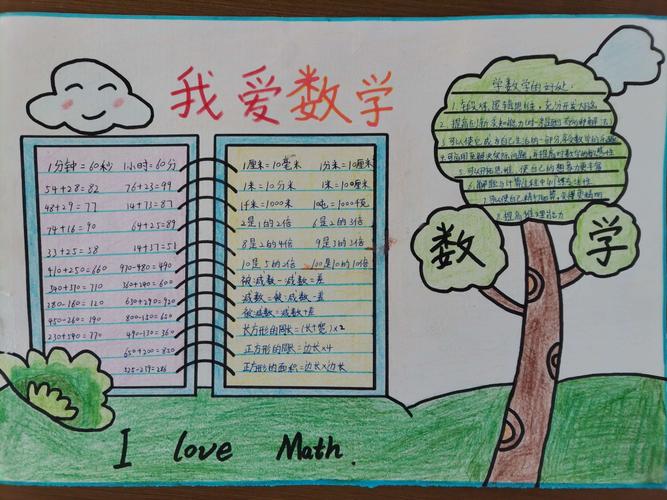 我爱数学
1分钟=60秒 1小时=60分
54+28=82 76+23=99
48+29=77 14+73=87
74+16=90 64+25=89
33+25=58 14+37=51
410+250=660 970-480=490
340+370=710 360+240=600
280-160=120 630+290=920
450-260=190 800-150=650
230+540=770 490-130=360
650+200=850
525-239=286
1厘米=10毫米 1分米=10厘米
1米=10分米 1米=100厘米
1千米=1000米 10吨=10000千克
2是1的2倍 6是2的3倍
8是2的4倍 9是3的3倍
10是5的2倍 100是10的10倍
被减数-减数=差
减数=被减数-差
被减数=减数+差
长方形的周长=(长+宽)×2
正方形的周长=边长×4
正方形的面积=边长×边长
学数学的好处:
1.锻炼逻辑思维,充分开发大脑
3.可以使它成为自己生活的一部分享受数学的乐趣
8.提高推理能力
数学
I love Math.